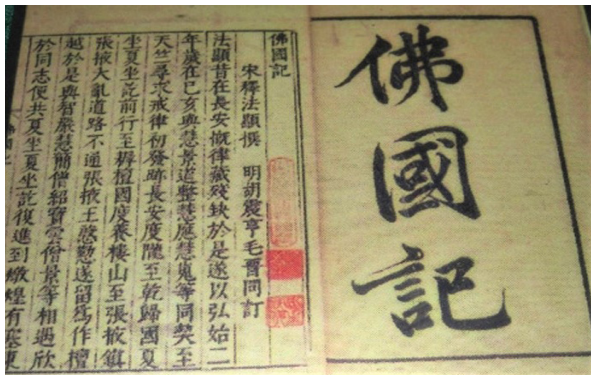 佛國記
佛國記
宋釋法顯撰 明胡震亨毛晉同訂
法顯昔在長安慨律藏殘缺於是遂以弘始二
年歲在己亥與慧景道整慧應慧嵬等同契至
天竺尋求戒律初發跡長安度隴至乾歸國夏
坐夏坐訖前行至耨檀國度養樓山至張掖鎮
張掖大亂道路不通張掖王慇懃遂留爲作檀
越於是與智嚴慧簡僧紹寶雲僧景等相遇欣
於同志便共夏坐夏坐訖復進到燉煌有塞東